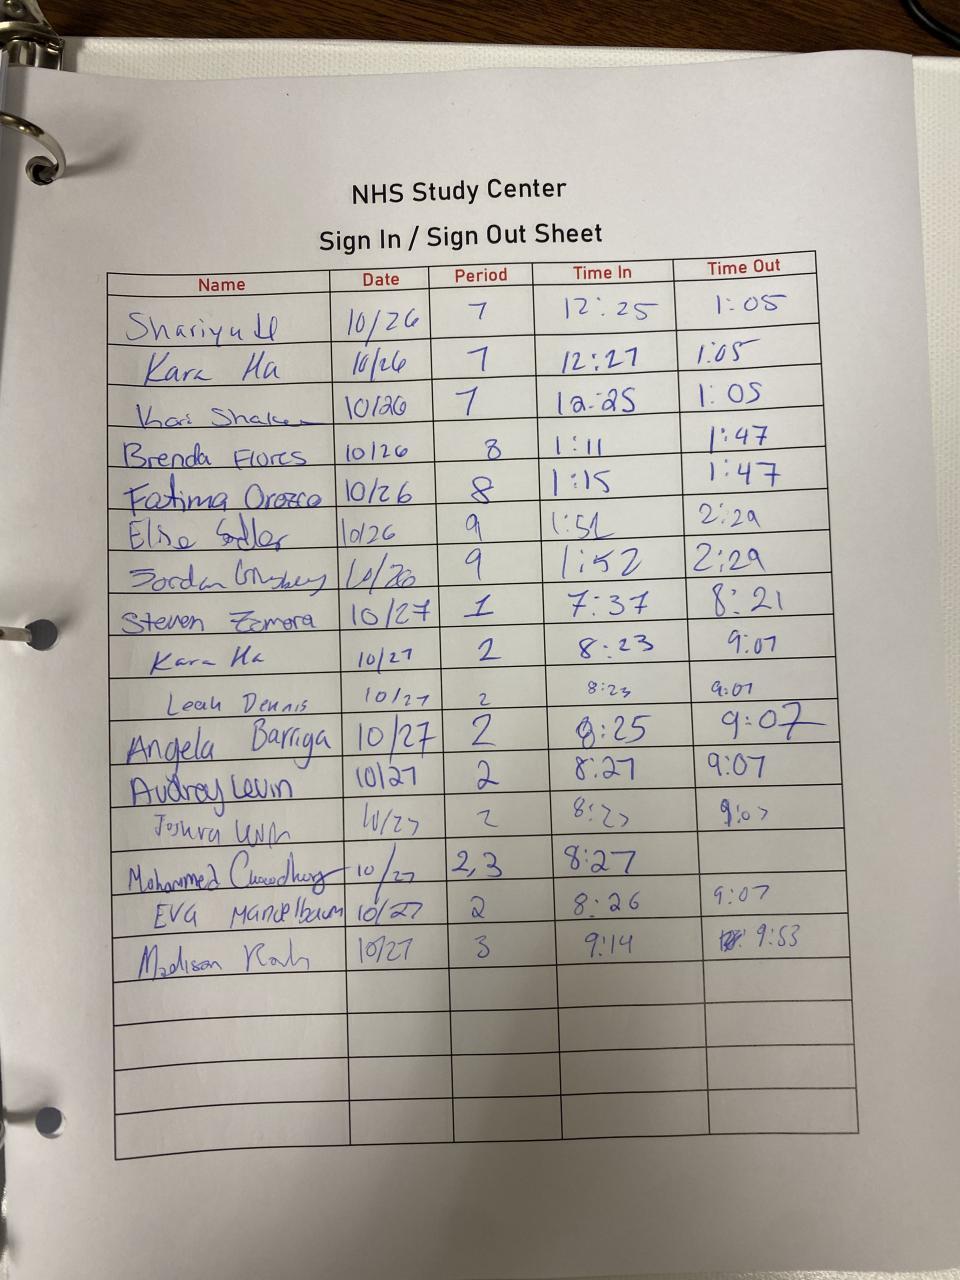 NHS Study Center
Sign In / Sign Out Sheet
Name Date Period Time In Time Out
10/26 7 12:25 1:05
Kara Ha 10/26 7 12:27 1:05
10/26 7 12:25 1:05
Brenda Flores 10/26 8 1:11 1:47
Fatima Orozco 10/26 8 1:15 1:47
Elise 10/26 9 2:29
Jordan 10/26 9 1:52 2:29
Steven Zamora 10/27 1 7:37 8:21
Kara Ha 10/27 2 8:23 9:07
Leah Dennis 10/27 2 8:23 9:07
Angela Barriga 10/27 2 8:25 9:07
Audrey Levin 10/27 2 8:27 9:07
Joshua 10/27 2 8:27 9:07
Mohammed Chowdhury 10/27 2,3 8:27
Eva Mandelbaum 10/27 2 8:26 9:07
Madison 10/27 3 9:14 9:53